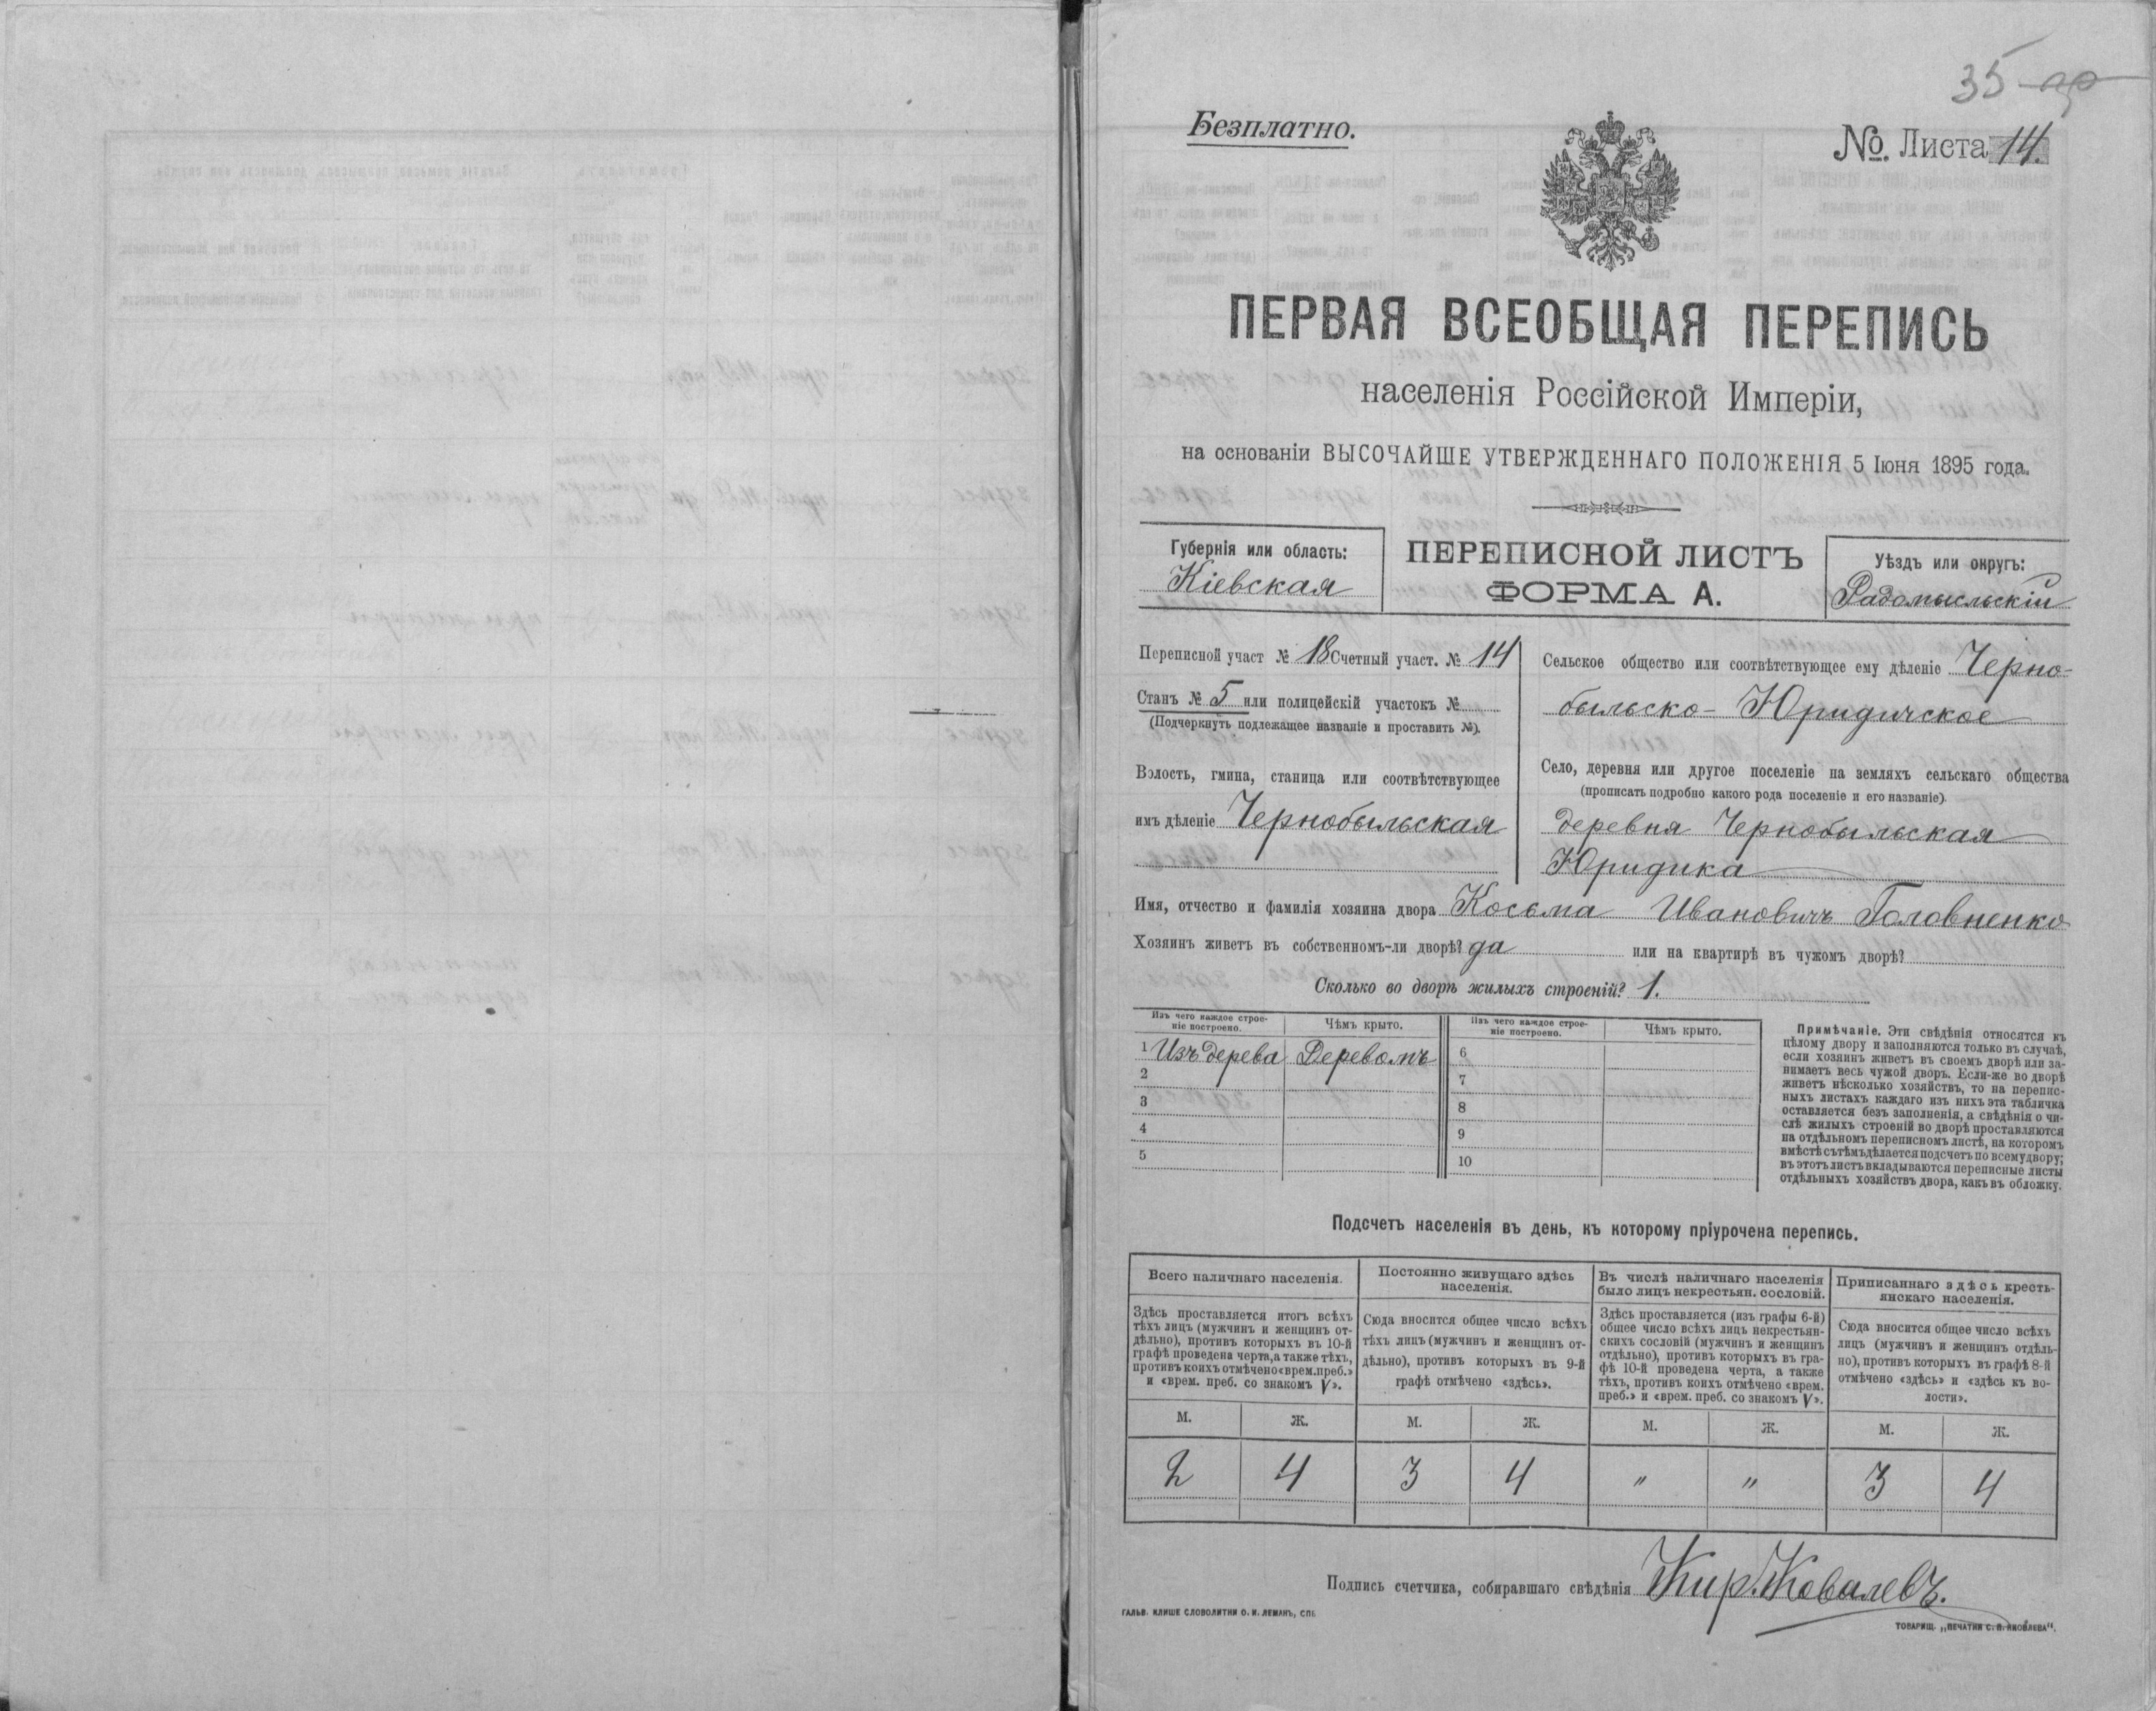 35
Безплатно.
№. Листа 14.
ПЕРВАЯ ВСЕОБЩАЯ ПЕРЕПИСЬ
населенія Россійской Имперіи,
на основаніи ВЫСОЧАЙШЕ УТВЕРЖДЕННАГО ПОЛОЖЕНІЯ 5 Іюня 1895 года.
Губернія или область:
Кіевская
ПЕРЕПИСНОЙ ЛИСТЪ
ФОРМА А.
Уѣздъ или округъ:
Радомысльскій
Переписной участ № 18 Счетный участ. № 14
Станъ № 5 или полицейскій участокъ №
(Подчеркнуть подлежащее названіе и проставить №).
Волость, гмина, станица или соотвѣтствующее
имъ дѣленіе Чернобыльская
Сельское общество или соотвѣтствующее ему дѣленіе Черно-
быльско-Юридичское
Село, деревня или другое поселеніе на земляхъ сельскаго общества
(прописать подробно какого рода поселеніе и его названіе).
деревня Чернобыльская
Юридика
Имя, отчество и фамилія хозяина двора Косьма Ивановичъ Головненко
Хозяинъ живетъ въ собственномъ-ли дворѣ? да или на квартирѣ въ чужомъ дворѣ?
Сколько во дворѣ жилыхъ строеній? 1.
Изъ чего каждое строе-
ніе построено.
Чѣмъ крыто.
Изъ чего каждое строе-
ніе построено.
Чѣмъ крыто.
1 Изъ дерева Деревомъ 6
2 7
3 8
4 9
5 10
Примѣчаніе. Эти свѣдѣнія относятся къ
цѣлому двору и заполняются только въ случаѣ,
если хозяинъ живетъ въ своемъ дворѣ или за-
нимаетъ весь чужой дворъ. Если-же во дворѣ
живетъ нѣсколько хозяйствъ, то на перепис-
ныхъ листахъ каждаго изъ нихъ эта табличка
оставляется безъ заполненія, а свѣдѣнія о чи-
слѣ жилыхъ строеній во дворѣ проставляются
на отдѣльномъ переписномъ листѣ, на которомъ
вмѣстѣ съ тѣмъ дѣлается подсчетъ по всему двору;
въ этотъ листъ вкладываются переписные листы
отдѣльныхъ хозяйствъ двора, какъ въ обложку.
Подсчетъ населенія въ день, къ которому пріурочена перепись.
Всего наличнаго населенія.
Здѣсь проставляется итогъ всѣхъ
тѣхъ лицъ (мужчинъ и женщинъ от-
дѣльно), противъ которыхъ въ 10-й
графѣ проведена черта, а также тѣхъ,
противъ коихъ отмѣчено «врем. преб.»
и «врем. преб. со знакомъ V».
Постоянно живущаго здѣсь
населенія.
Сюда вносится общее число всѣхъ
тѣхъ лицъ (мужчинъ и женщинъ от-
дѣльно), противъ которыхъ въ 9-й
графѣ отмѣчено «здѣсь».
Въ числѣ наличнаго населенія
было лицъ некрестьян. сословій.
Здѣсь проставляется (изъ графы 6-й)
общее число всѣхъ лицъ некрестьян-
скихъ сословій (мужчинъ и женщинъ
отдѣльно), противъ которыхъ въ гра-
фѣ 10-й проведена черта, а также
тѣхъ, противъ коихъ отмѣчено «врем.
преб.» и «врем. преб. со знакомъ V».
Приписаннаго здѣсь кресть-
янскаго населенія.
Сюда вносится общее число всѣхъ
лицъ (мужчинъ и женщинъ отдѣль-
но), противъ которыхъ въ графѣ 8-й
отмѣчено «здѣсь» и «здѣсь къ во-
лости».
М. Ж. М. Ж. М. Ж. М. Ж.
2 4 3 4 " " 3 4
Подпись счетчика, собиравшаго свѣдѣнія Кир. Ковалевъ.
ГАЛЬВ. КЛИШЕ СЛОВОЛИТНИ О. И. ЛЕМАНЪ, СПБ.
ТОВАРИЩ. „ПЕЧАТНИ С. П. ЯКОВЛЕВА".